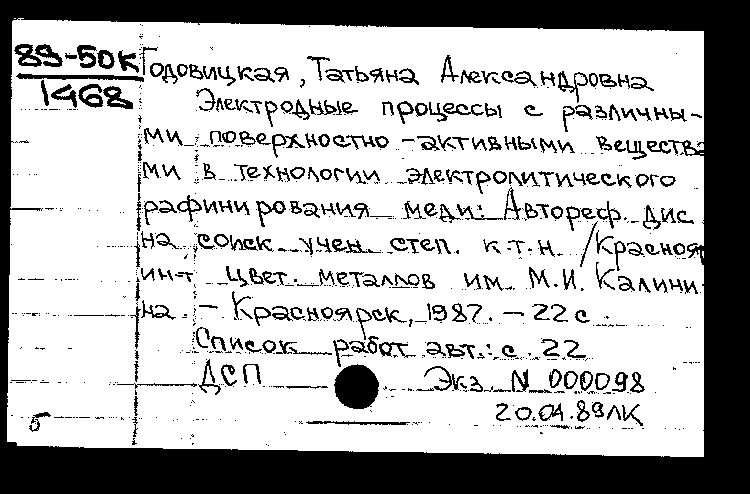 89-50к
1468
Годовицкая, Татьяна Александровна
Электродные процессы с различны-
ми поверхностно-активными вещества
ми в технологии электролитического
рафинирования меди: Автореф. дис
на соиск. учен. степ. к.т.н. / Краснояр
ин-т цвет. металлов им. М.И. Калини
на. – Красноярск, 1987. – 22 с.
Список работ авт.: с. 22
ДСП Экз. N 000098
20.04.89ЛК
б